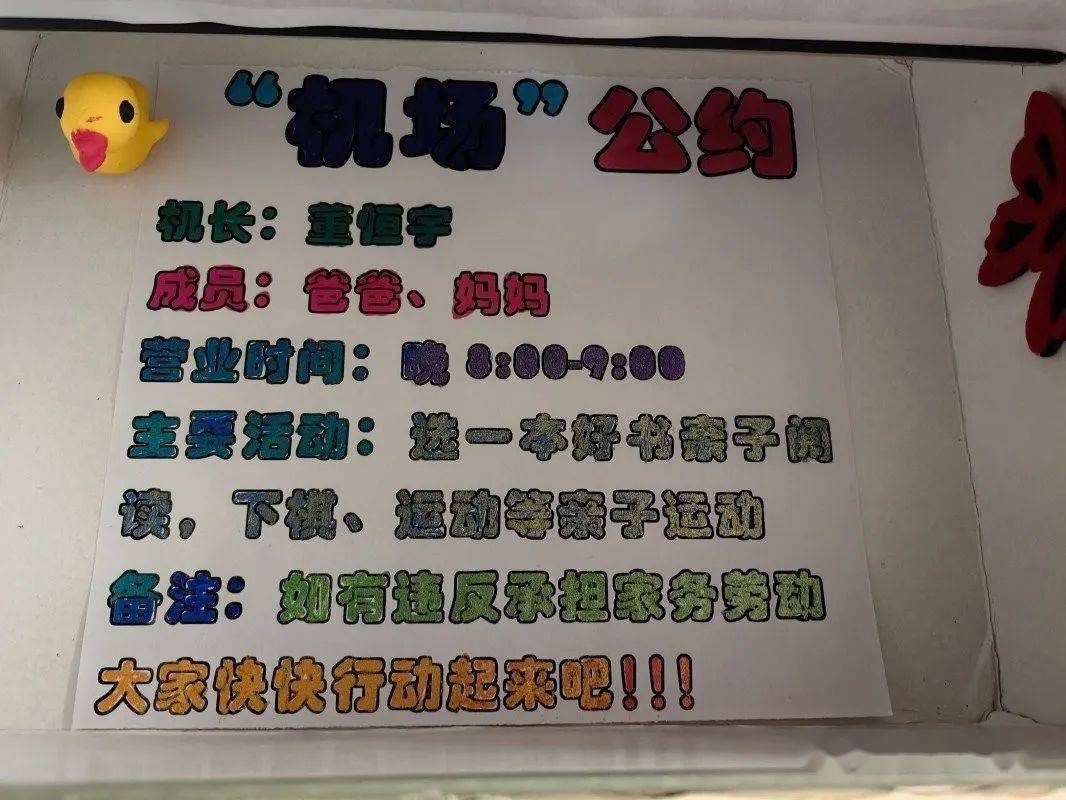 “机场”公约
机长：董恒宇
成员：爸爸、妈妈
营业时间：晚 8:00-9:00
主要活动：选一本好书亲子阅
读，下棋、运动等亲子运动
备注：如有违反承担家务劳动
大家快快行动起来吧！！！